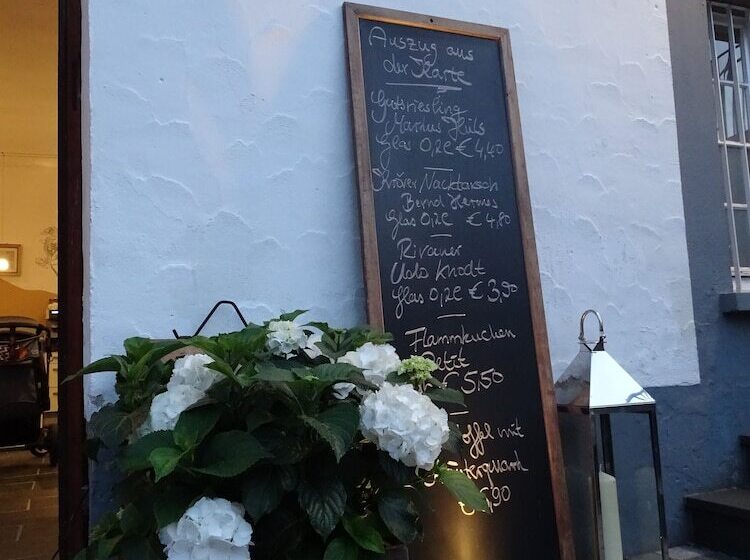 Auszug aus
der Karte
Gutsriesling
Marcus Hüls
Glas 0,2l € 4,40
Kröver Nacktarsch
Bernd Hermes
Glas 0,2l € 4,80
Rivaner
Udo Knodt
Glas 0,2l € 3,90
Flammkuchen
Petit
€ 5,50
mit